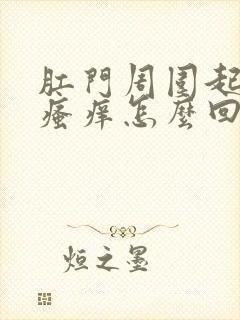 肛門周圍起
瘙痒怎麼回
烜之墨